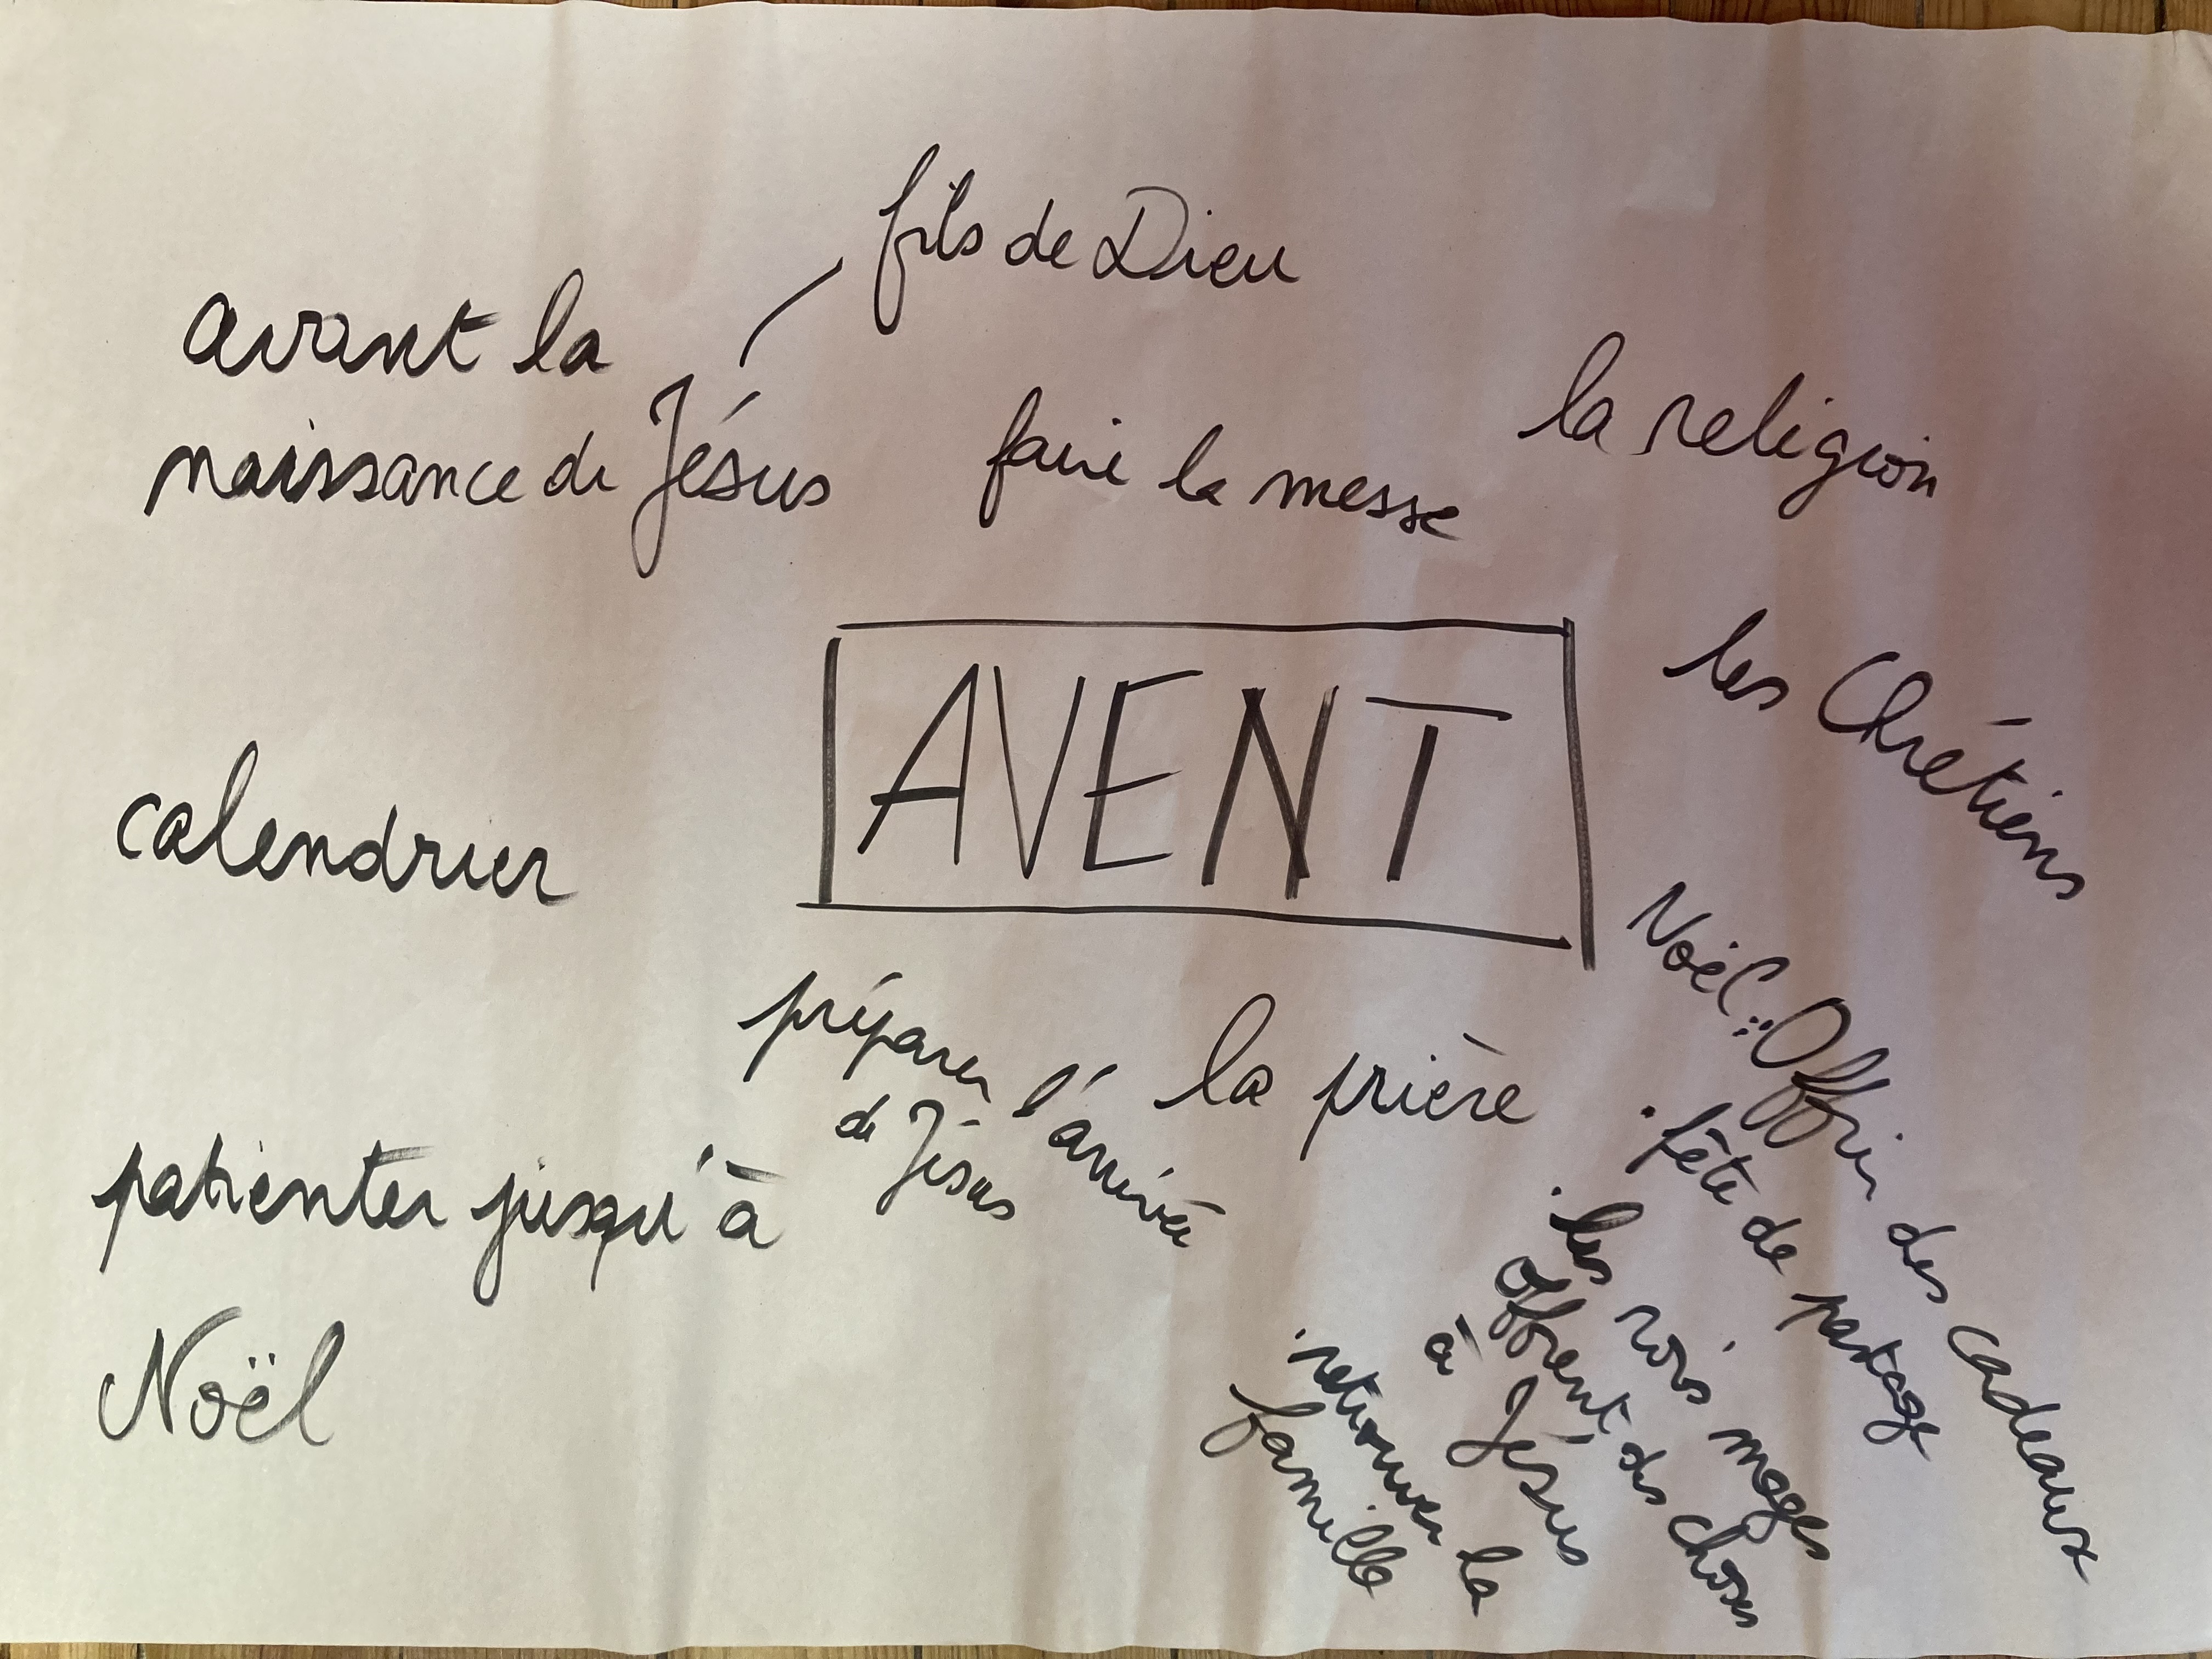 fils de Dieu
avant la
naissance de Jésus
faire la messe
la religion
AVENT
les Chrétiens
calendrier
préparer l'arrivée
de Jésus
la prière
patienter jusqu'à
Noël
Noël : Offrir des cadeaux
. fête de partage
. les rois mages
offrent des choses
à Jésus
. retrouver la
famille